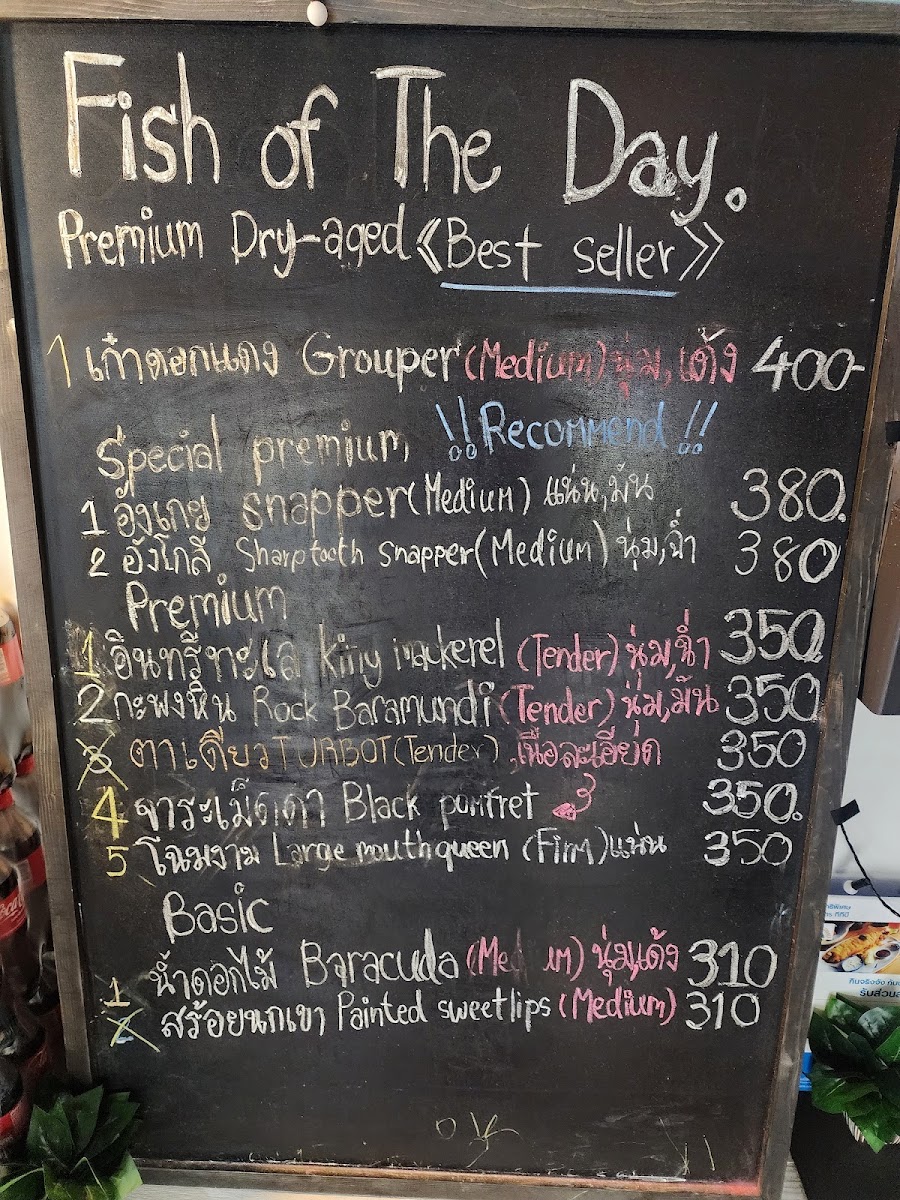 Fish of The Day.
Premium Dry-aged《Best seller》
1 เก๋าดอกแดง Grouper (Medium) นุ่ม,เด้ง 400-
Special premium !! Recommend !!
1 อังเกย snapper (Medium) แน่น,มัน 380.
2 อังโกลี Sharptooth snapper (Medium) นุ่ม,ฉ่ำ 380
Premium
1 อินทรีทะเล king mackerel (Tender) นุ่ม,ฉ่ำ 350.
2 กะพงหิน Rock Baramundi (Tender) นุ่ม,มัน 350
3 ตาเดียว TURBOT (Tender) ,เนื้อละเอียด 350
4 จาระเม็ดดำ Black pomfret 350.
5 โฉมงาม Large mouth queen (Firm) แน่น 350
Basic
1 น้ำดอกไม้ Baracuda (Medium) นุ่ม,เด้ง 310
สร้อยนกเขา Painted sweetlips (Medium) 310